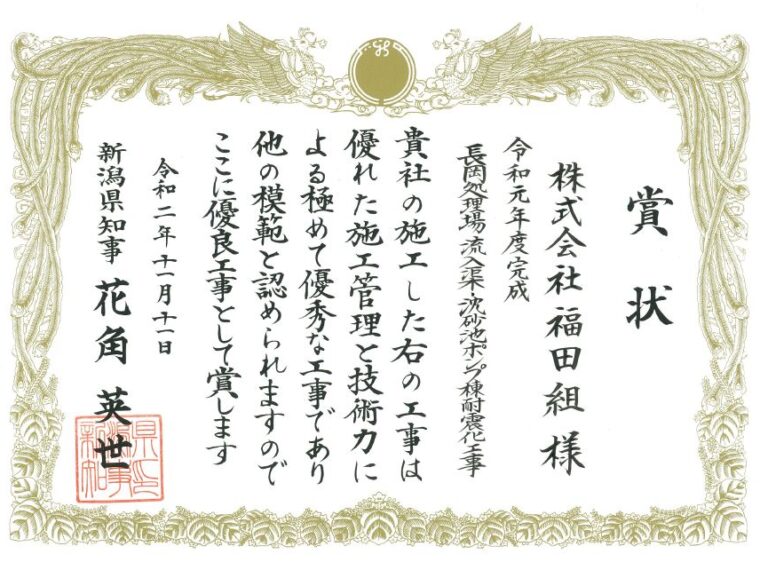 賞状
株式会社福田組様
令和元年度完成
長岡処理場流入渠・沈砂池ポンプ棟耐震化工事
貴社の施工した右の工事は
優れた施工管理と技術力に
よる極めて優秀な工事であり
他の模範と認められますので
ここに優良工事として賞します
令和二年十一月十一日
新潟県知事 花角英世
新潟県知事之印